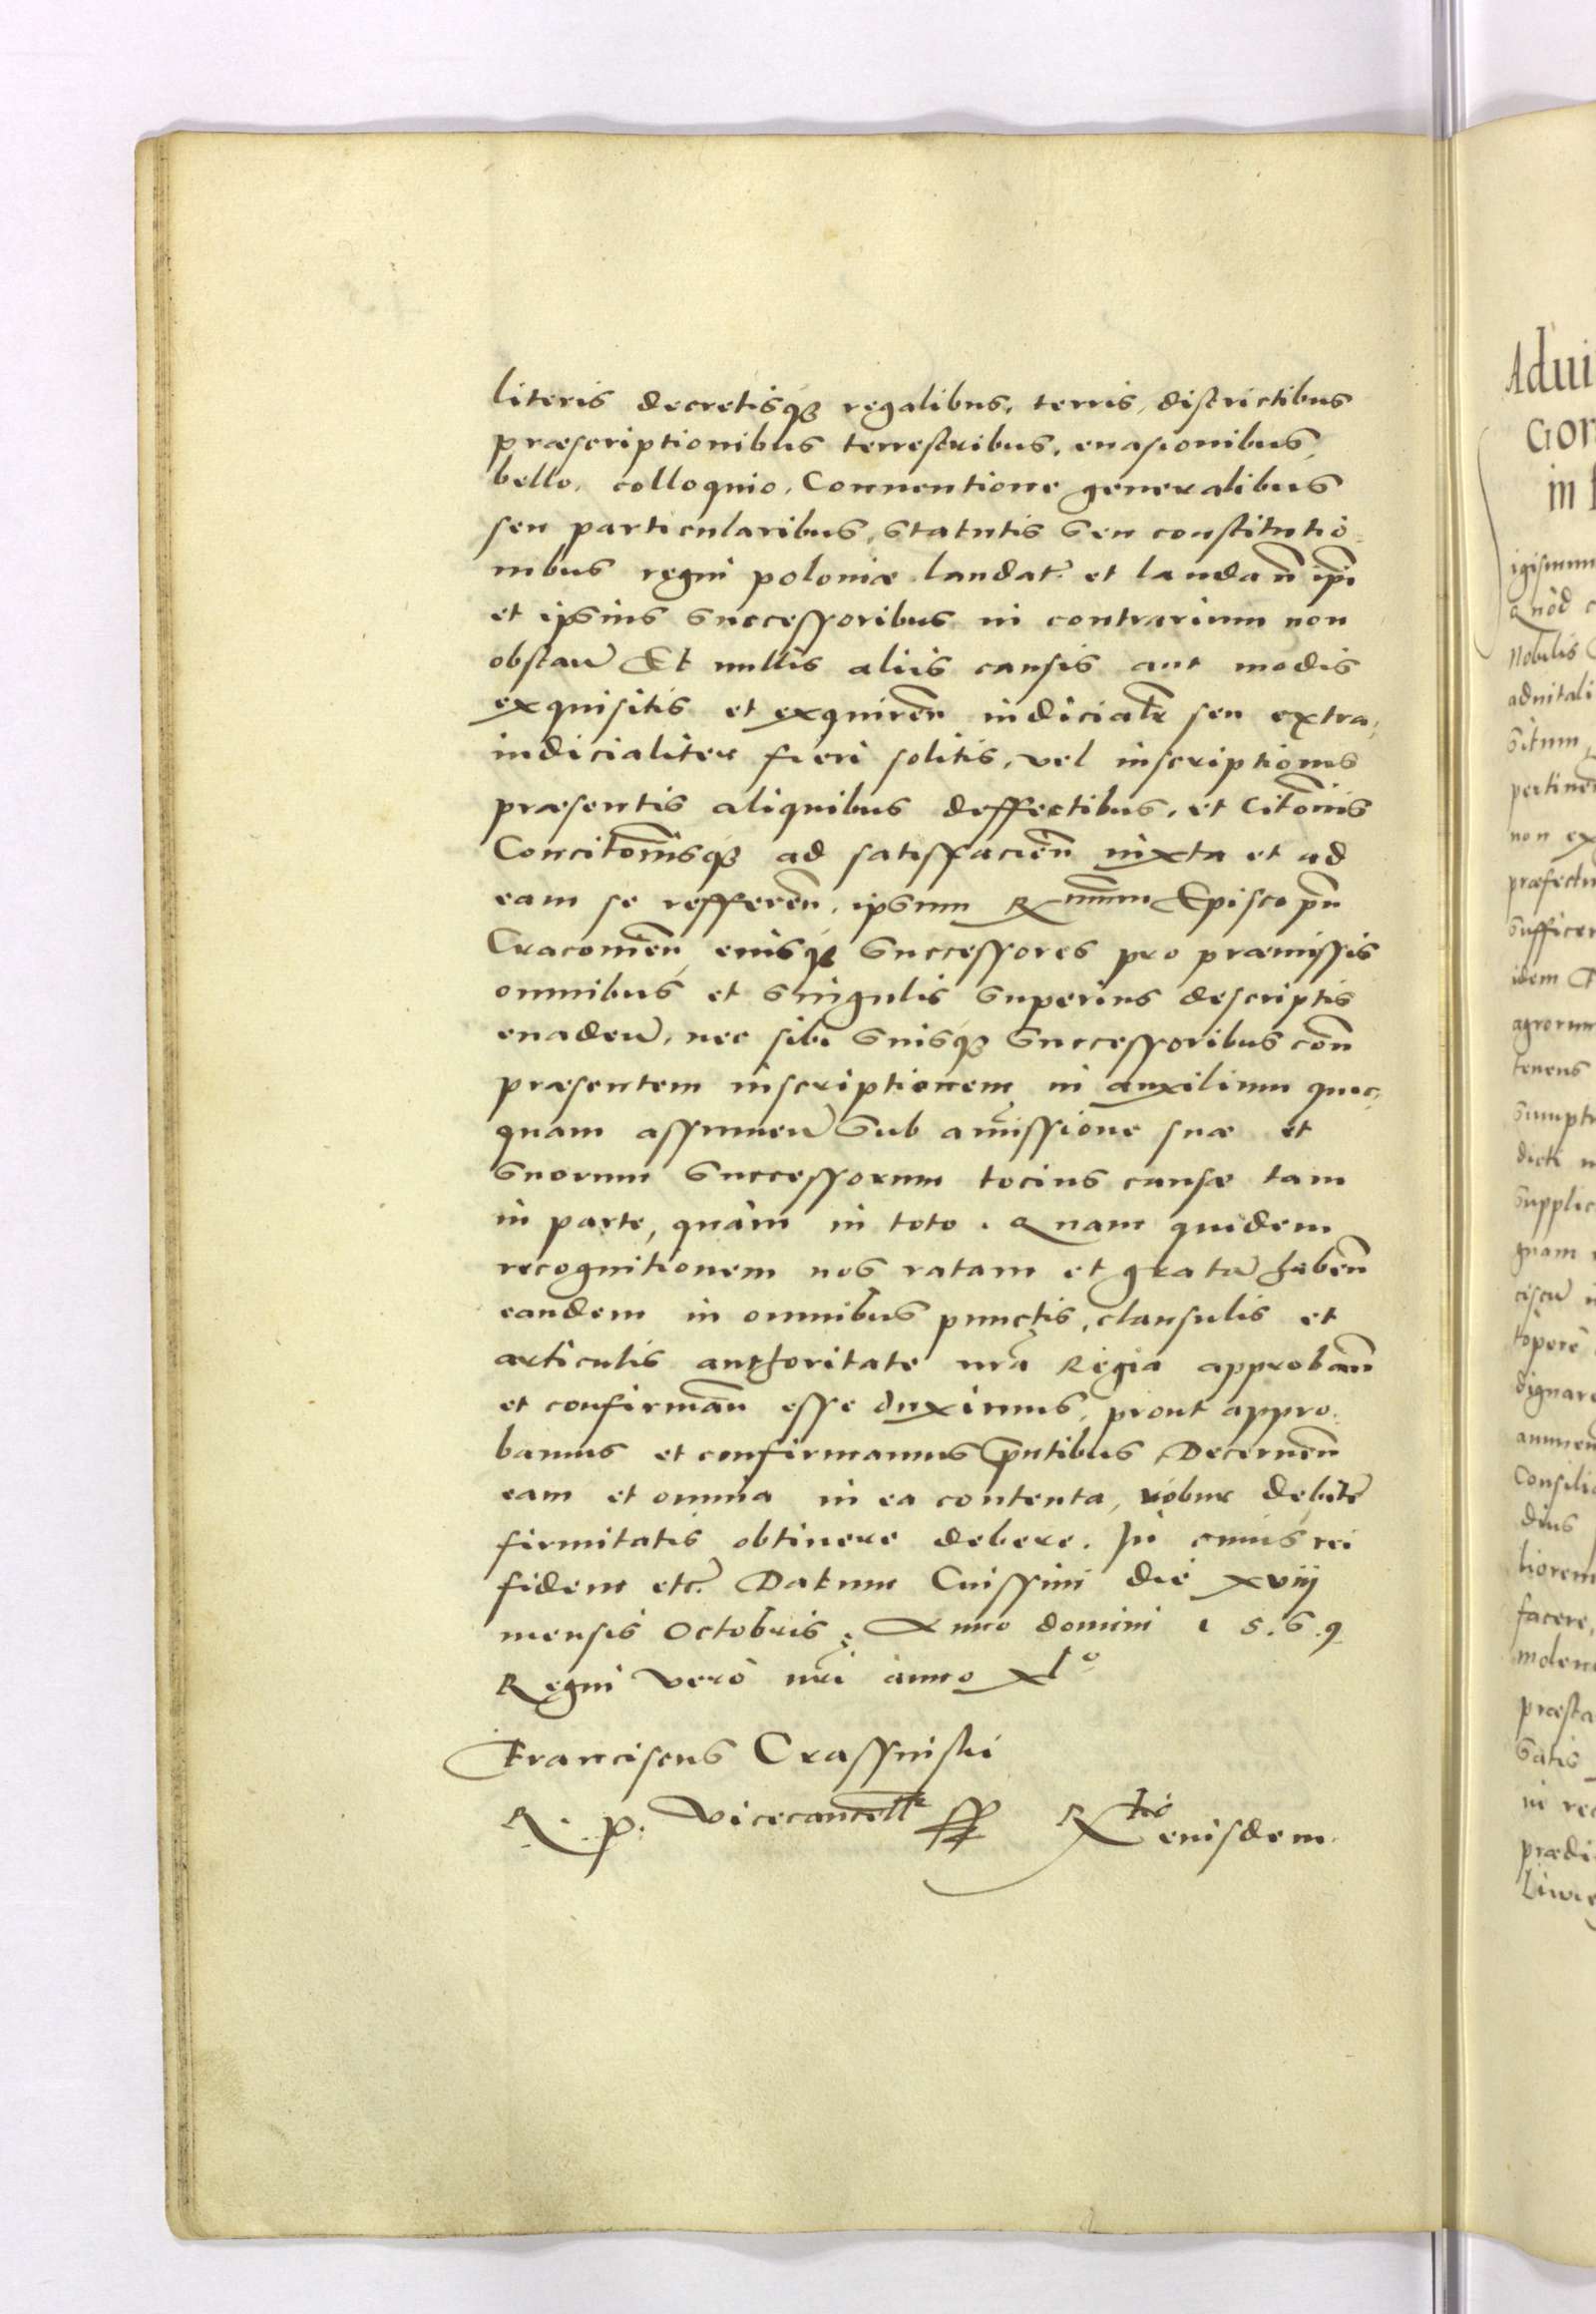 literis decretisq₃ regalibus, terris, districtibus
præscriptionibus terrestribus, euasionibus,
bello, colloquio, Conuentione generalibus
seu particularibus, statutis seu constitutio
nibus regni poloniæ laudat. et laudan̄ ip̄i
et ipsius successoribus in contrarium non
obstan̄ Et nullis aliis causis aut modis
exquisitis et exquiren̄ iudicialr̄ seu extra,
iudicialiter fieri solitis, vel inscriptionis
præsentis aliquibus deffectibus, et Citōnis
Concitōnisq₃ ad satisfacien̄ iuxta et ad
eam se refferen̄, ipsum R mūm Episcopū
Cracouien̄, eiusq₃ successores pro præmissis
omnibus et singulis superius descriptis
euaden̄, nec sibi suisq₃ successoribus cōn
præsentem inscriptionem in auxilium quic,
quam assumen̄ sub amissione suæ et
suorum successorum tocius causæ tam
in parte, quàm in toto. Quam quidem
recognitionem nos ratam et gratā haben̄
eandem in omnibus punctis, clausulis et
articulis authoritate nr̄a Regia approban̄
et confirman̄ esse duximus, prout appro
bamus et confirmamus p̄ntibus, Decernen̄
eam et omnia in ea contenta, robur debitæ
firmitatis obtinere debere. In cuius rei
fidem etc. Datum Cuissini die xviij
mensis Octobris, Anno domini 1 5.6.9
Regni verò nr̄i anno xl°
Franciscus Crassinski
R. p. Vicecancell̄r R tio eiusdem.
Adui
Gor
in
igismun
Quòd c
Nobilis
aduitali
situm
pertinen̄
non ex
præfectu
sufficer
idem
agrorum
tenens
sumpt
dicti
supplic
quam
toperè
dignare
annuen̄
Consili
dius
liorem
facere,
molen
præsta
satis
in re
prædi